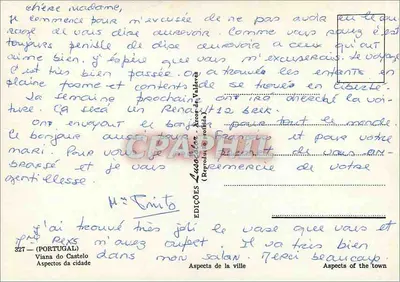 chère madame,
Je commence pour m'excusée de ne pas avoir eu le cou
rage de vous dire aurevoir. Comme vous savez c'est
toujours penible de dire aurevoir a ceux qu'on
aime bien. J'espère que vous m'excuserais. Le voyage
c'est très bien passée. On a trouvée les enfants en
pleine forme et contents de se trouve en liberté.
la semaine prochaine ont ira cherché la voi
ture. Ça sera un Renault 12 bleu.
ont envoyant le bonjour pour tout le monde.
le bonjour aussi et pour votre
mari. Pour vous
et je vous remercie de votre
gentillesse.
CPAPHIL
EDIÇÕES
(Reprodução proibida)
J'ai trouvé très joli le vase que vous et
m'avez
Il va très bien
dans mon salon. Merci beaucoup.
327 — (PORTUGAL)
Viana do Castelo
Aspectos da cidade
Aspects de la ville
Aspects of the town